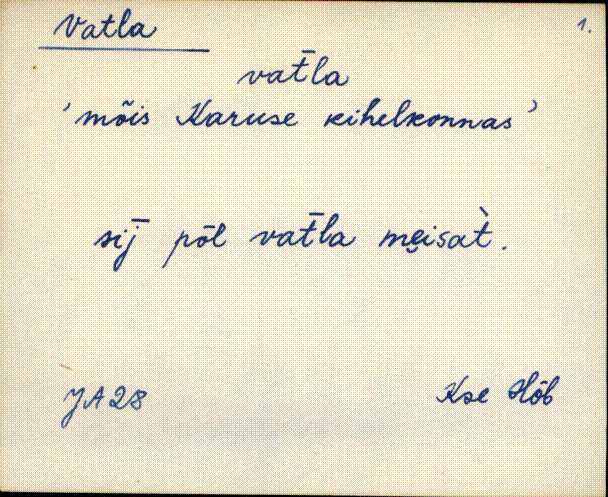 Vatla 1.
vat̄la
'mõis Karuse kihelkonnas'
sij̄ põl vat̄la me̮isat̀.
JA 28 Kse Hõb